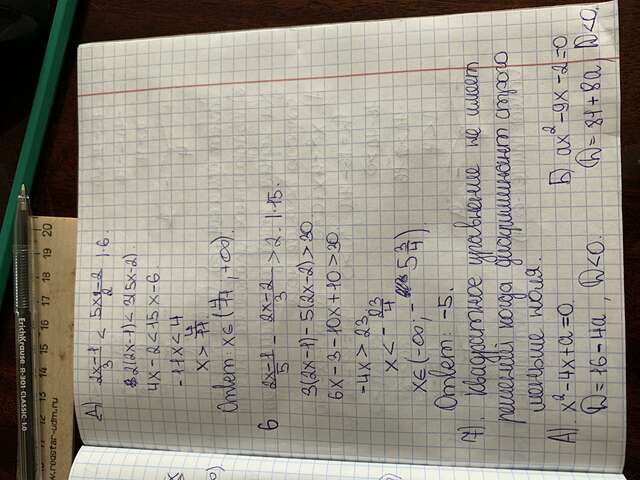 Д) (2x-1)/3 < (5x-2)/2 | · 6.
2(2x-1) < 3(5x-2).
4x-2 < 15x-6
-11x < 4
x > 4/11
Ответ: x ∈ (4/11, +∞)
6 (2x-1)/5 - (2x-2)/3 > 2 | · 15.
3(2x-1) - 5(2x-2) > 30
6x-3-10x+10 > 30
-4x > 23
x < -23/4
x ∈ (-∞, -5 3/4).
Ответ: -5.
7) Квадратное уравнение не имеет
решений когда дискриминант строго
меньше ноля.
А) x²-4x+a=0. Б) ax²-9x-2=0
D=16-4a, D<0. D=81+8a, D<0.
ErichKrause R-301 CLASSIC 1.0
12 13 14 15 16 17 18 19 20
www.roostar-udm.ru